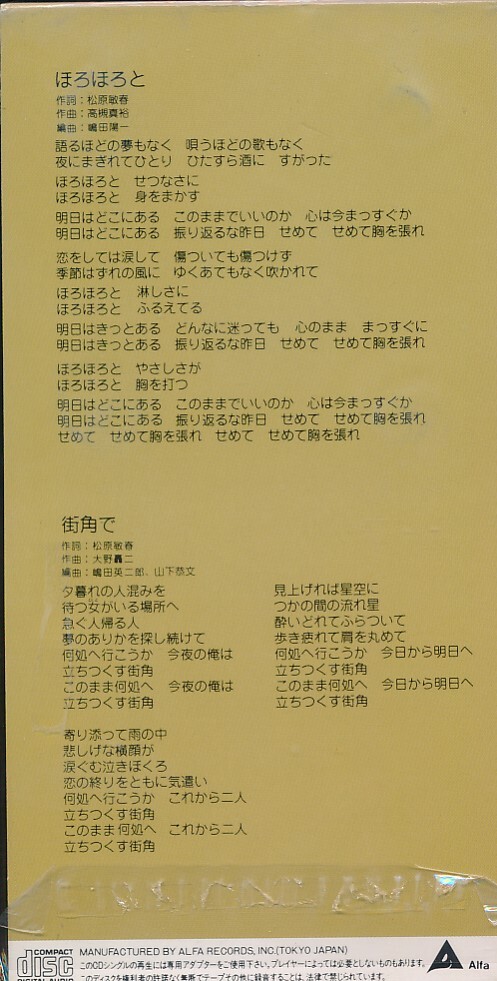 ほろほろと
作詞：松原敏春
作曲：高槻真裕
編曲：嶋田陽一
語るほどの夢もなく　唄うほどの歌もなく
夜にまぎれてひとり　ひたすら酒に　すがった
ほろほろと　せつなさに
ほろほろと　身をまかす
明日はどこにある　このままでいいのか　心は今まっすぐか
明日はどこにある　振り返るな昨日　せめて　せめて胸を張れ
恋をしては涙して　傷ついても傷つけず
季節はずれの風に　ゆくあてもなく吹かれて
ほろほろと　淋しさに
ほろほろと　ふるえてる
明日はきっとある　どんなに迷っても　心のまま　まっすぐに
明日はきっとある　振り返るな昨日　せめて　せめて胸を張れ
ほろほろと　やさしさが
ほろほろと　胸を打つ
明日はどこにある　このままでいいのか　心は今まっすぐか
明日はどこにある　振り返るな昨日　せめて　せめて胸を張れ
せめて　せめて胸を張れ　せめて　せめて胸を張れ
街角で
作詞：松原敏春
作曲：大野轟二
編曲：嶋田英二郎、山下恭文
夕暮れの人混みを
待つ女がいる場所へ
急ぐ人帰る人
夢のありかを探し続けて
何処へ行こうか　今夜の俺は
立ちつくす街角
このまま何処へ　今夜の俺は
立ちつくす街角
寄り添って雨の中
悲しげな横顔が
涙ぐむ泣きぼくろ
恋の終りをともに気遣い
何処へ行こうか　これから二人
立ちつくす街角
このまま何処へ　これから二人
立ちつくす街角
見上げれば星空に
つかの間の流れ星
酔いどれてふらついて
歩き疲れて肩を丸めて
何処へ行こうか　今日から明日へ
立ちつくす街角
このまま何処へ　今日から明日へ
立ちつくす街角
COMPACT
disc
DIGITAL AUDIO
MANUFACTURED BY ALFA RECORDS, INC.(TOKYO JAPAN)
このCDシングルの再生には専用アダプターをご使用下さい。プレイヤーによっては必要としないものもあります。
このディスクを権利者の許諾なく無断でテープその他に録音することは、法律で禁じられています。
Alfa